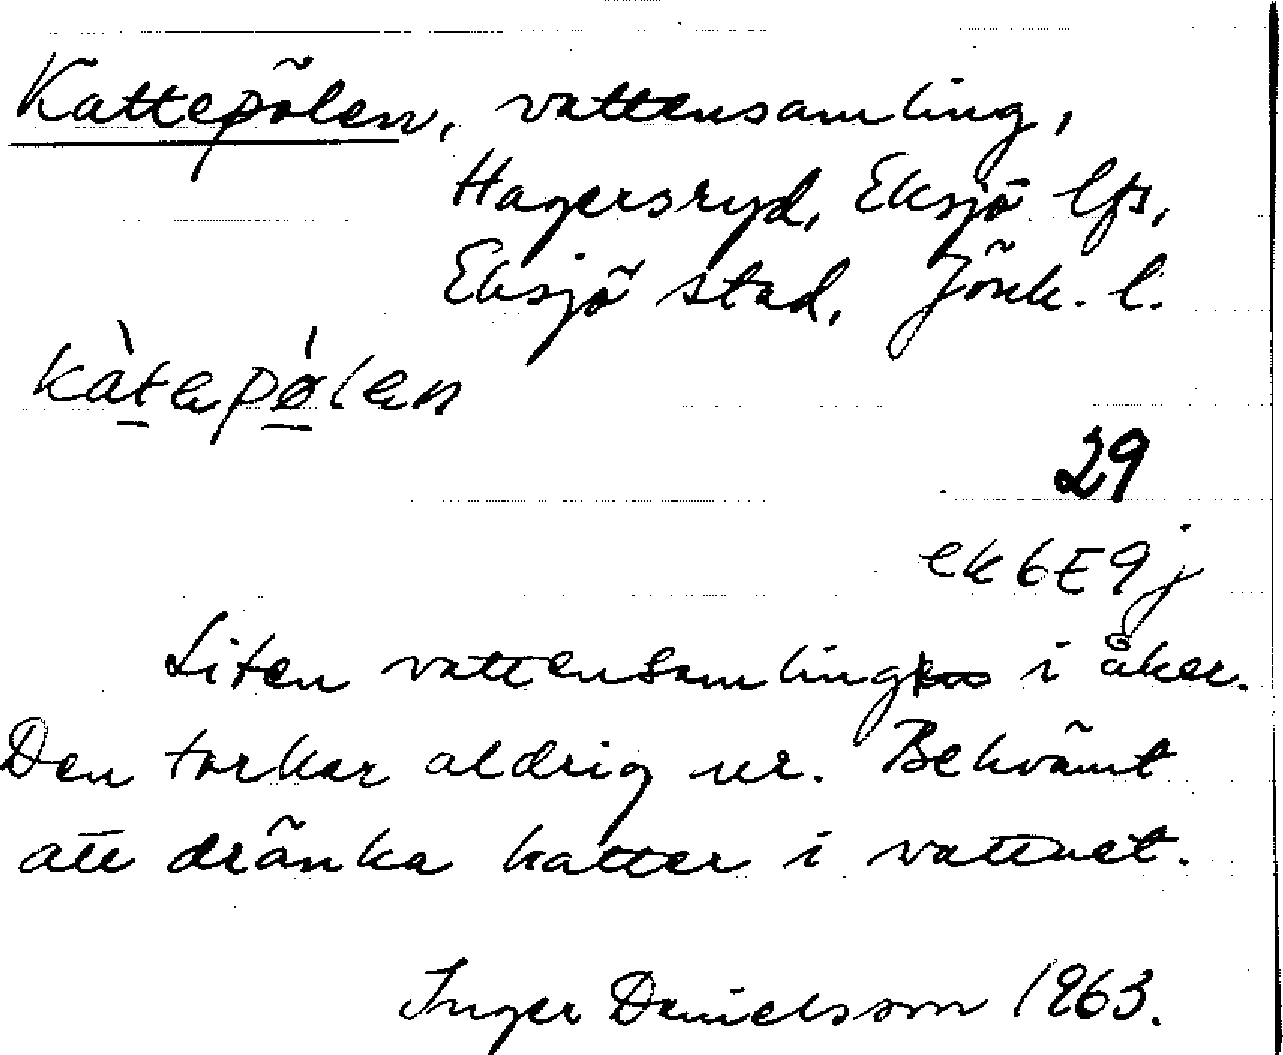 Kattepölen, vattensamling,
Hagersryd, Eksjö lfs,
Eksjö stad, Jönk. l.
kàtapǿlan
29
ek 6E9j
Liten vattensamling i åker.
Den torkar aldrig ur. Bekvämt
att dränka katter i vattnet.
Inger Danielsson 1963.